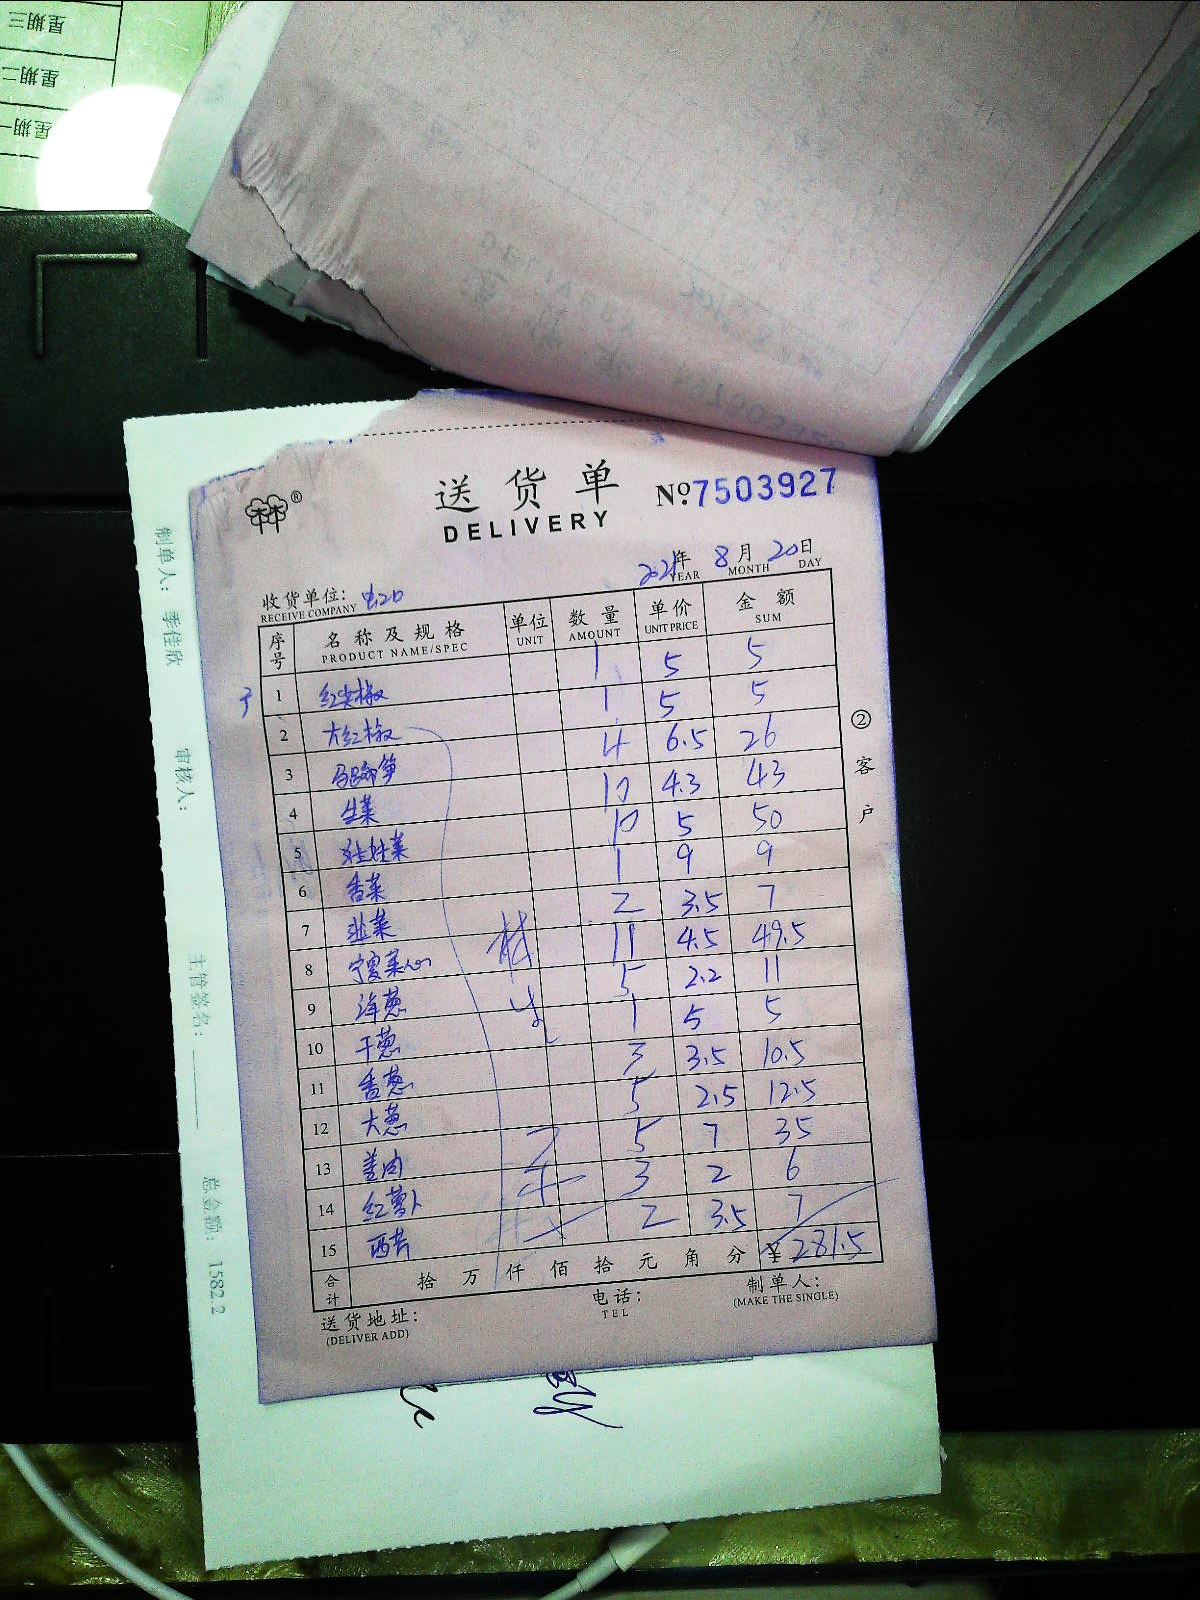 星期三
星期二
星期一
送货单
DELIVERY
®
Nº7503927
2021年 8月 20日
YEAR MONTH DAY
收货单位:
RECEIVE COMPANY
序号 名称及规格 单位 数量 单价 金额
PRODUCT NAME/SPEC UNIT AMOUNT UNIT PRICE SUM
1 红尖椒 1 5 5
2 大红椒 1 5 5
3 4 6.5 26
4 生菜 10 4.3 43
5 娃娃菜 10 5 50
6 香菜 1 9 9
7 韭菜 2 3.5 7
8 宁夏菜心 11 4.5 49.5
9 洋葱 5 2.2 11
10 干葱 1 5 5
11 香葱 3 3.5 10.5
12 大葱 5 2.5 12.5
13 姜肉 5 7 35
14 红萝卜 3 2 6
15 西芹 2 3.5 7
合计 拾 万 仟 佰 拾 元 角 分 ¥281.5
送货地址:
(DELIVER ADD)
电话:
TEL
制单人:
(MAKE THE SINGLE)
②客户
制单人: 季佳欣
审核人:
主管签名:
总金额: 1582.2